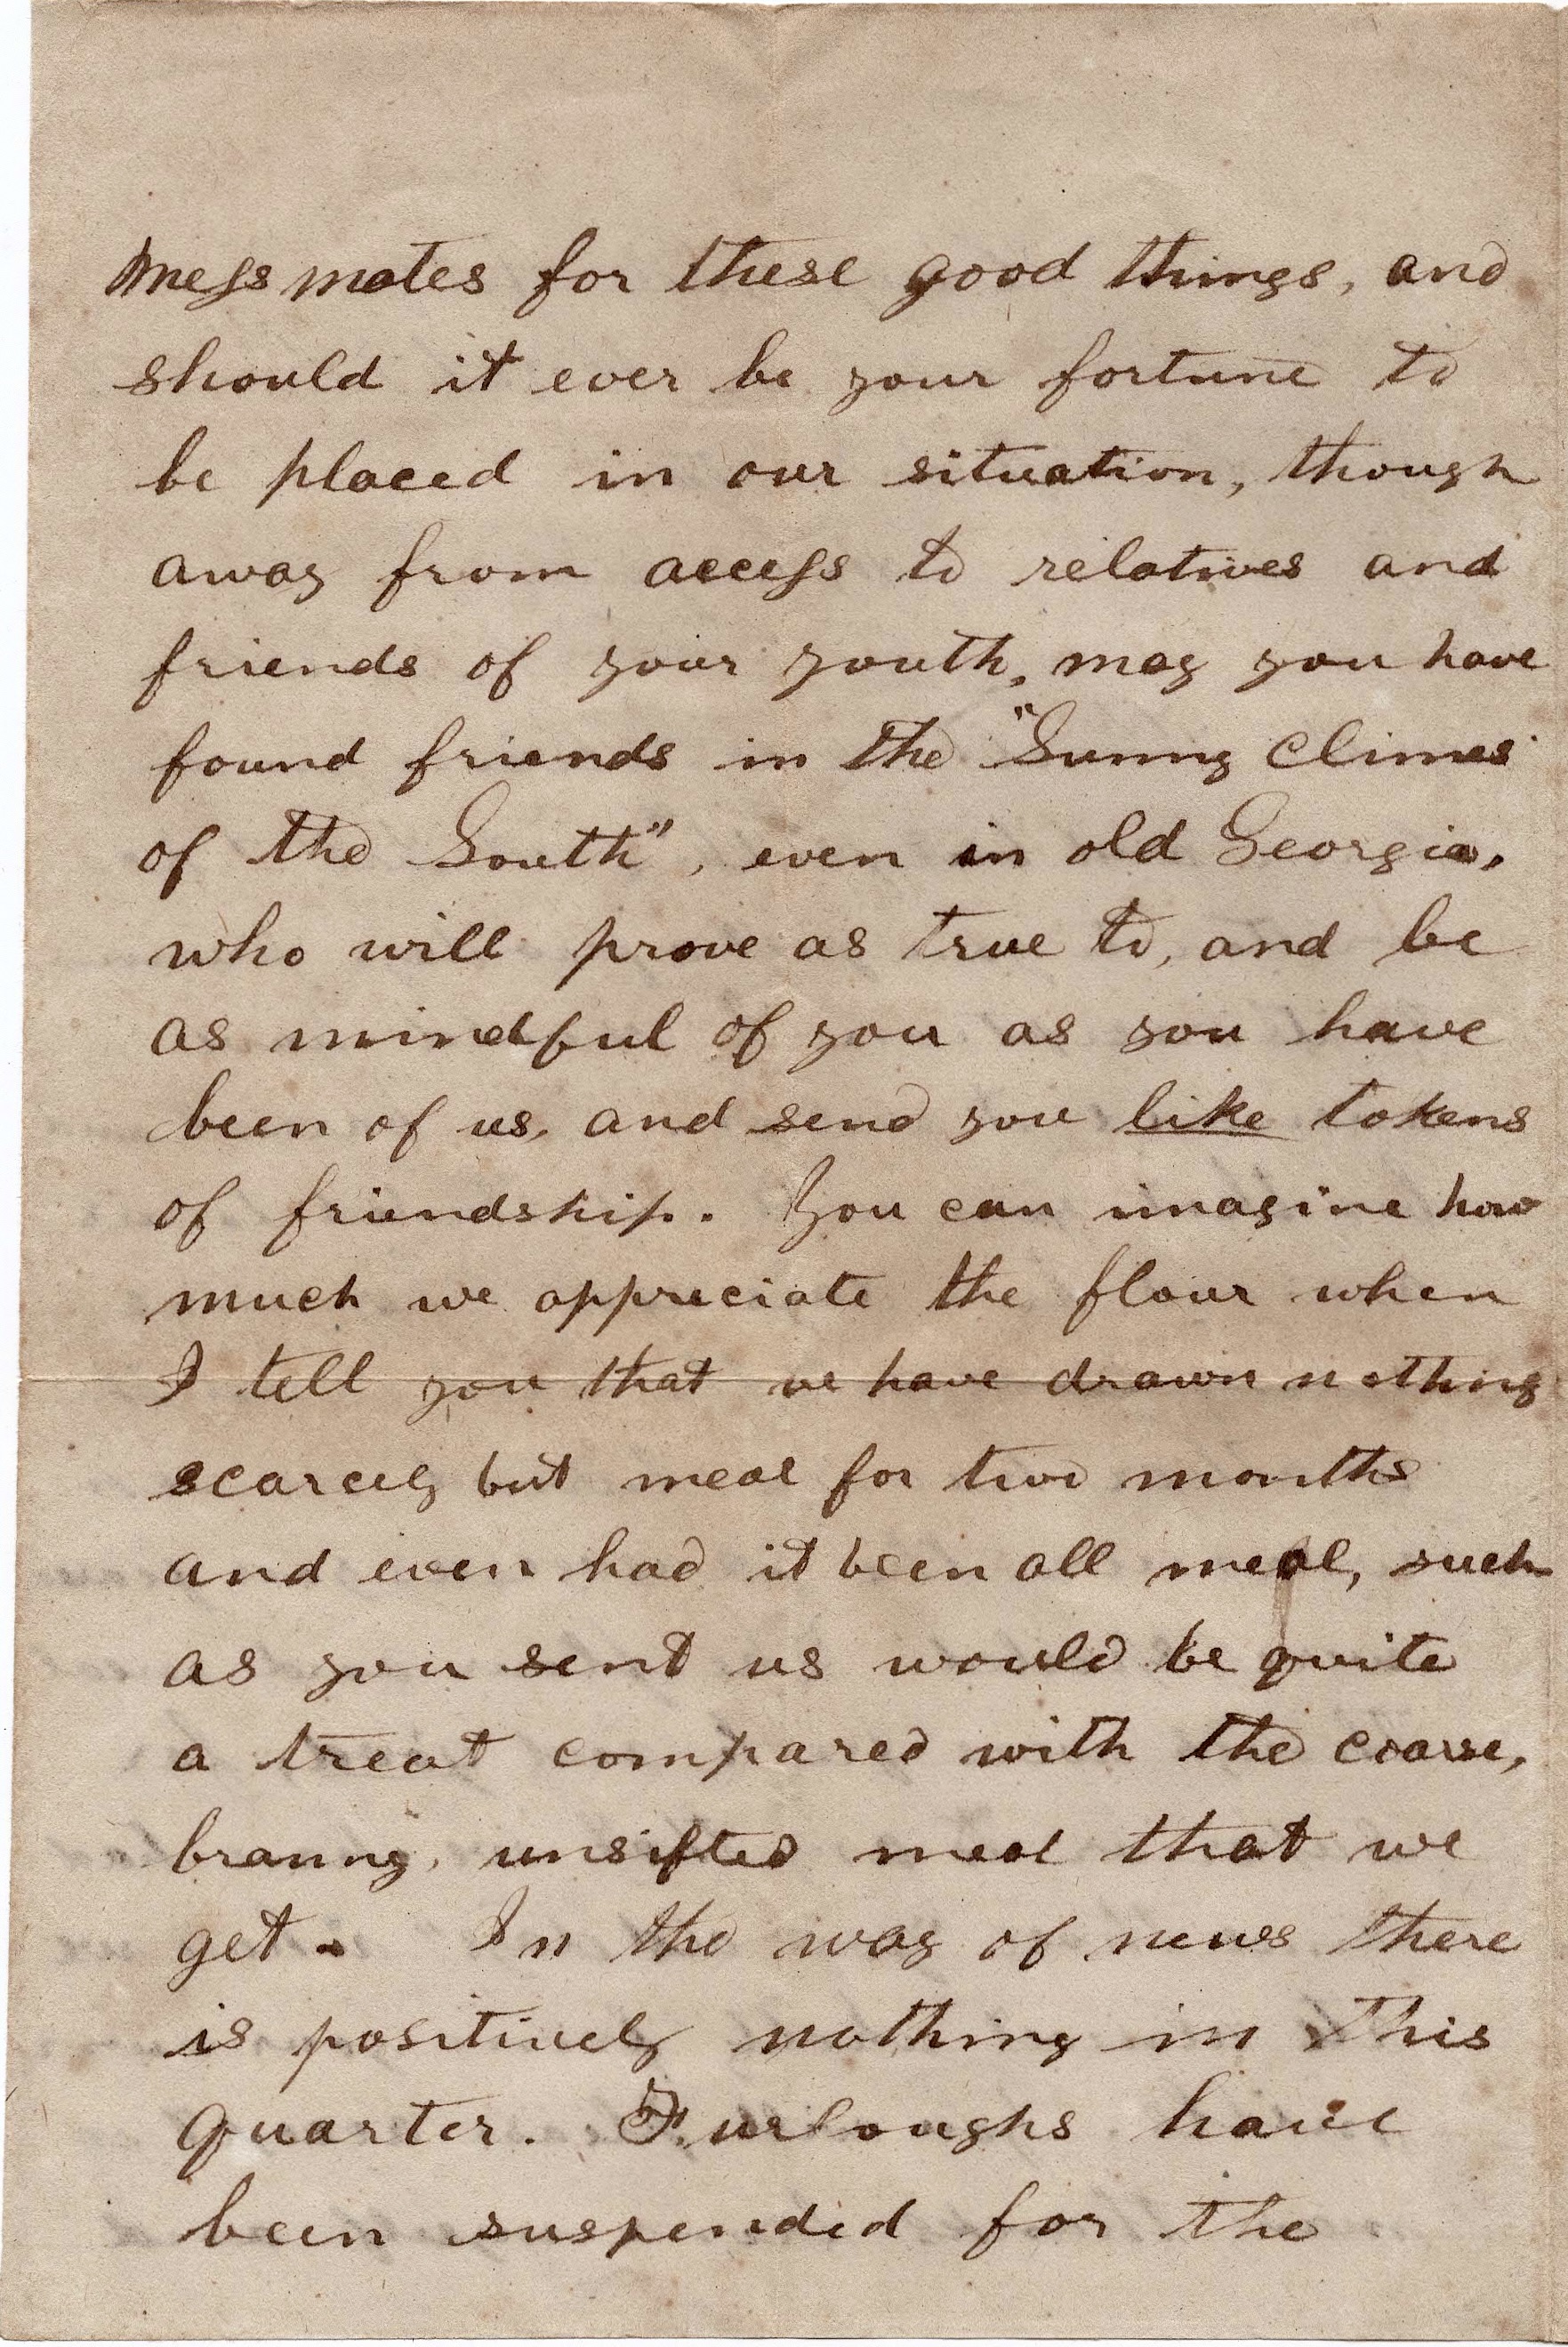 mess mates for these good things, and
should it ever be your fortune to
be placed in our situation, though
away from access to relatives and
friends of your youth, may you have
found friends in the "Sunny Climes
of the South", even in old Georgia,
who will prove as true to, and be
as mindful of you as you have
been of us, and send you like tokens
of friendship. You can imagine how
much we appreciate the flour when
I tell you that we have drawn nothing
scarcely but meal for two months
and even had it been all meal, such
as you sent us would be quite
a treat compared with the coarse,
branny, unsifted meal that we
get. In the way of news there
is positively nothing in this
quarter. Furloughs have
been suspended for the